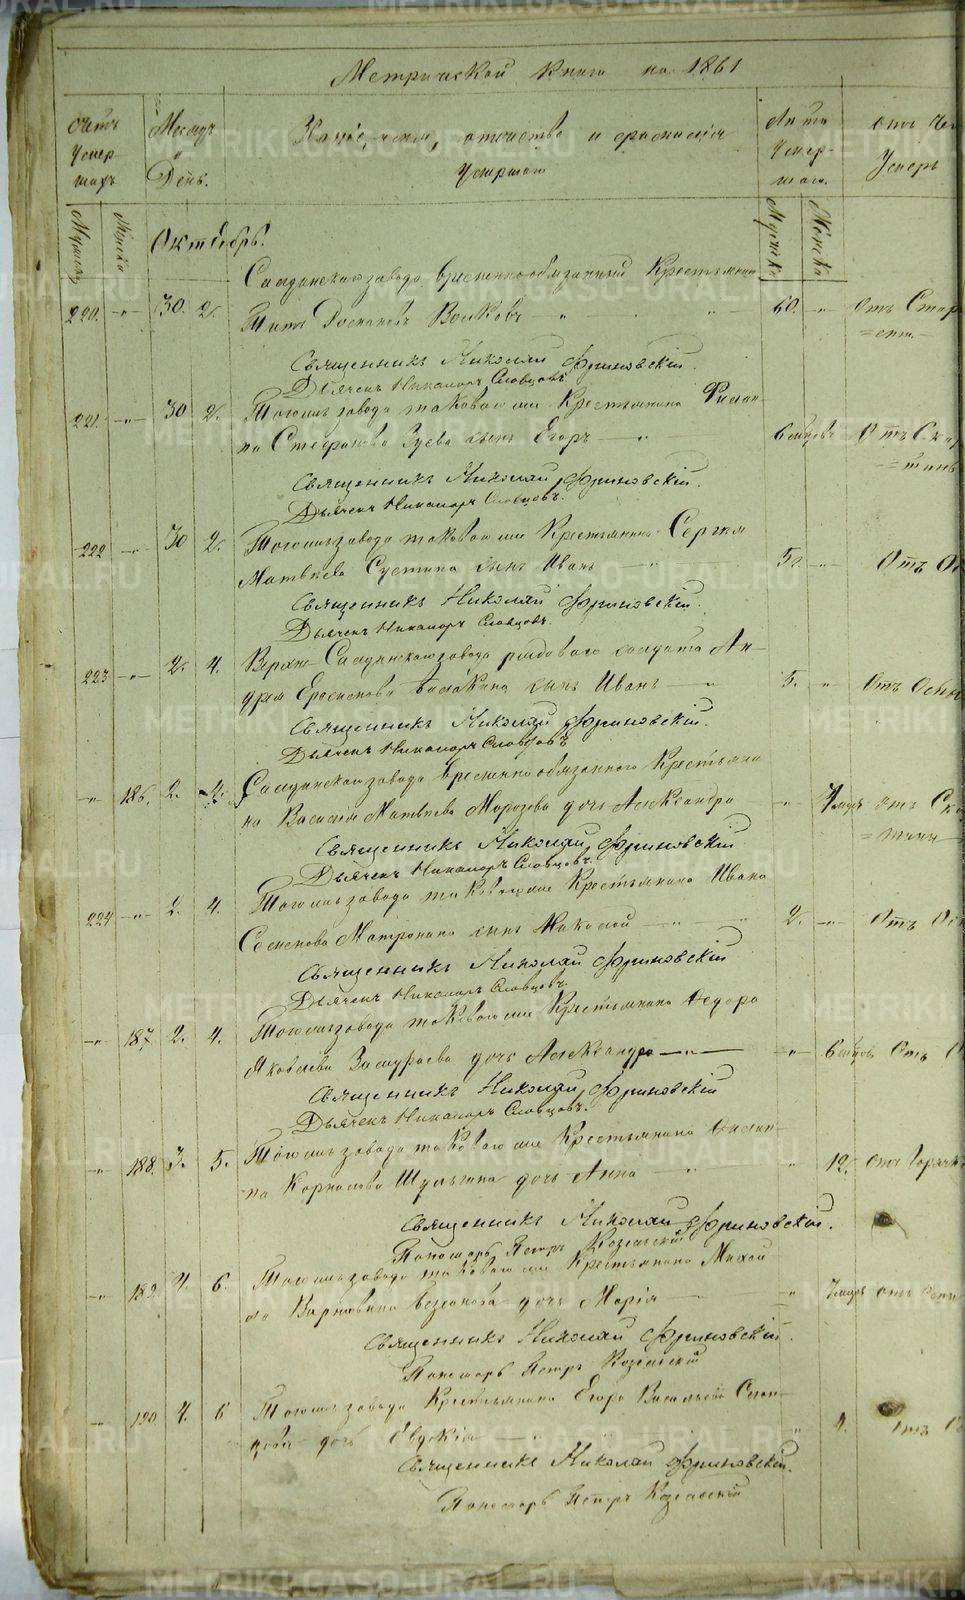 METRIKI.GASO-URAL.RU
Метрической книги на 1861
Счетъ умер шихъ
Месяцъ и День.
Званіе, имя, отчество и фамилія умершаго
Лѣта умер- шаго.
отъ чего умеръ
Мужска
Женска
Мужска
Женска
Октябрь.
Салдинскаго завода временнообязанный Крестьянинъ
220. -"- 30. 2. Титъ Волковъ 60. -"- Отъ Стар
=сти.
Священникъ Николай Фриновскій.
Дьячекъ Никаноръ Словцовъ.
221. -"- 30 2. Тогоже завода таковаго же Крестьянина Филип-
па Стефанова Гуева сынъ Егоръ Отъ
Священникъ Николай Фриновскій.
Дьячекъ Никаноръ Словцовъ.
222 -"- 30 2. Тогоже завода таковаго же Крестьянина Сергия
Матвѣева Сустина сынъ Иванъ 5. -"- Отъ
Священникъ Николай Фриновскій.
Дьячекъ Никаноръ Словцовъ.
223 -"- 2. 4. Верхне-Салдинскаго завода рядоваго солдата Ан-
дрея сынъ Иванъ 3. " Отъ Оспы
Священникъ Николай Фриновскій.
Дьячекъ Никаноръ Словцовъ
-"- 186. 2. 4. Салдинскаго завода временнообязаннаго Крестьяни
на Василія Матвѣева Морозова дочь Александра " отъ
Священникъ Николай Фриновскій
Дьячекъ Никаноръ Словцовъ.
224 -"- 2. 4. Тогоже завода таковаго же Крестьянина Ивана
Семенова Матронина сынъ Николай 2. -"- Отъ
Священникъ Николай Фриновскій
Дьячекъ Никаноръ Словцовъ.
-"- 187 2. 4. Тогоже завода таковаго же Крестьянина Ѳедора
Яковлева дочь Александра -"- Отъ
Священникъ Николай Фриновскій
Дьячекъ Никаноръ Словцовъ.
-"- 188. 3. 5. Тогоже завода таковаго же Крестьянина Филип-
па Корнилова Шулгина дочь Анна " 12. отъ Горячк
Священникъ Николай Фриновскій.
Пономарь Петръ Козельскій
-"- 189. 4. 6. Тогоже завода таковаго же Крестьянина Михай
ла дочь Марія " отъ
Священникъ Николай Фриновскій.
Пономарь Петръ Козельскій
-"- 190 4. 6 Тогоже завода Крестьянина Егора Васильева
дочь Евдокія " 4. отъ
Священникъ Николай Фриновскій.
Пономарь Петръ Козельскій